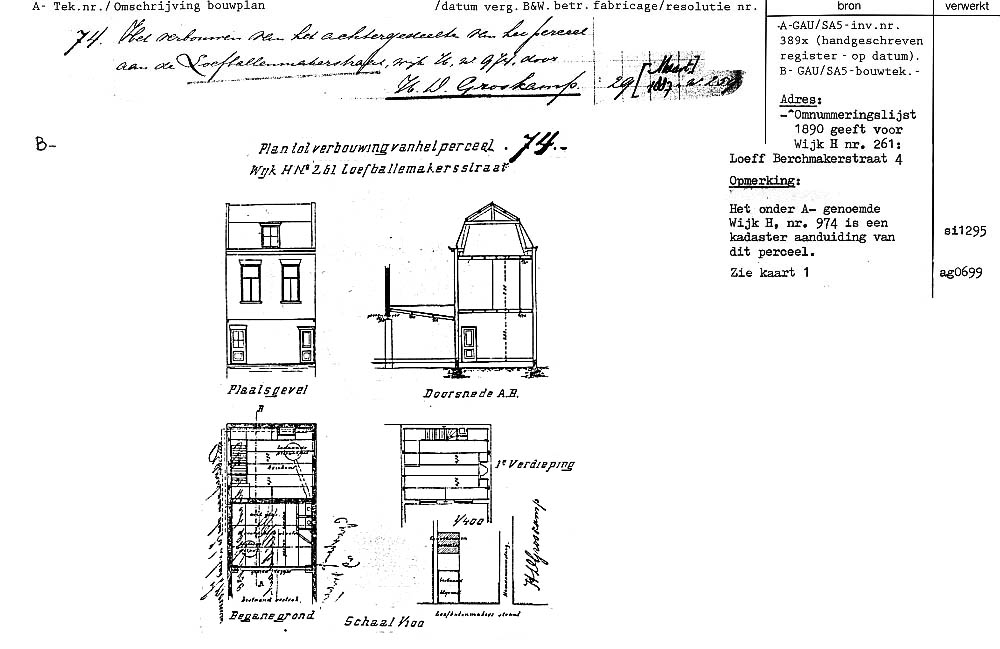 A- Tek.nr./Omschrijving bouwplan /datum verg. B&W. betr. fabricage/resolutie nr. bron verwerkt
74. Het verbouwen van het achtergedeelte van het perceel
aan de Loefballenmakerstraat, wijk H, no 974, door
H. D. Groskamp. 29 Maart 1887
A-GAU/SA5-inv.nr.
389x (handgeschreven
register - op datum).
B- GAU/SA5-bouwtek.-
Adres:
-^Omnummeringslijst
1890 geeft voor
Wijk H nr. 261:
Loeff Berchmakerstraat 4
Opmerking:
Het onder A- genoemde
Wijk H, nr. 974 is een
kadaster aanduiding van
dit perceel.
Zie kaart 1
si1295
ag0699
B-
Plan tot verbouwing van het perceel . 74.-
Wijk H No 261 Loefballemakersstraat
Plaatsgevel
Doorsnede A.B.
B
1e Verdieping
1/400
H D Groskamp
bestaand perceel
Loefballenmakers straat
Beganegrond
Schaal 1/100